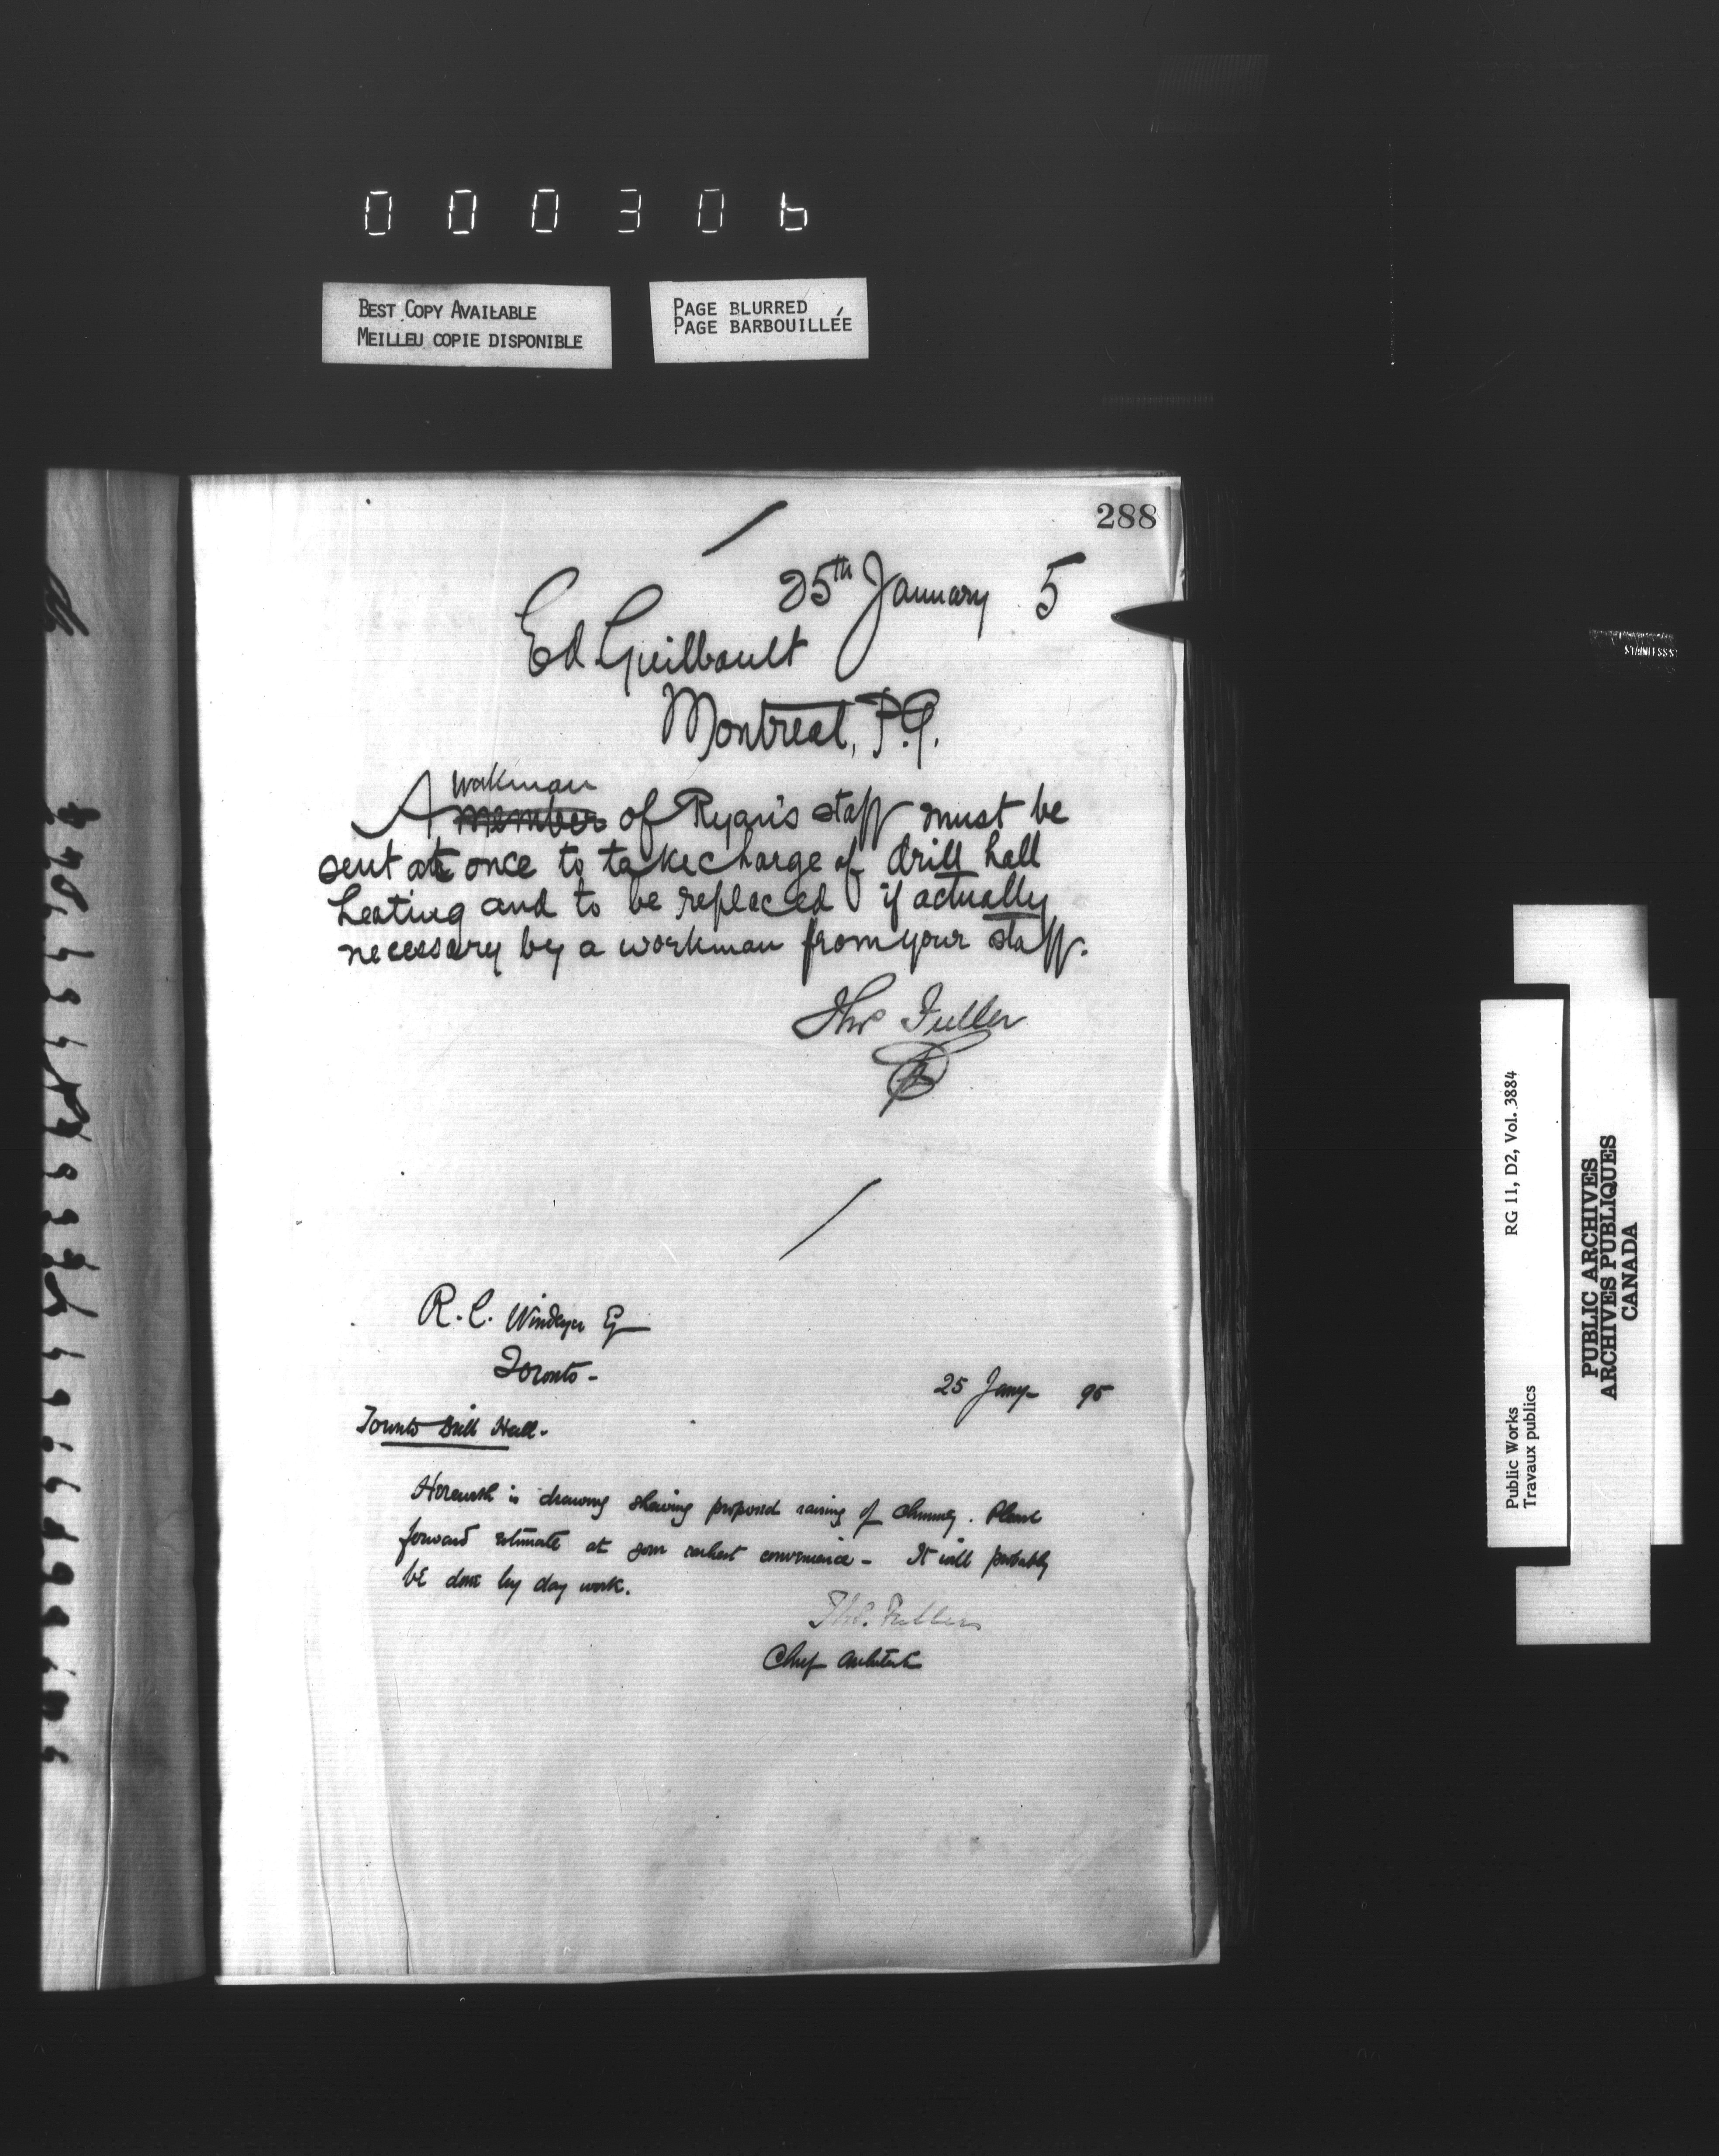 000306
BEST COPY AVAILABLE
MEILLEU COPIE DISPONIBLE
PAGE BLURRED
PAGE BARBOUILLÉE
288
25th January 5
Ed. Guilbault
Montreal, P.Q.
workman
A member of Ryan's staff must be
sent at once to take charge of drill hall
heating and to be replaced if actually
necessary by a workman from your staff.
Thos Fuller
R. C. Windeyer Esq
Toronto -
25 Jany - 95
Toronto Drill Hall -
Herewith is drawing shewing proposed raising of chimney. Please
forward estimate at your earliest convenience - It will probably
be done by day work.
Thos. Fuller
Chief Architect
Public Works
Travaux publics
RG 11, D2, Vol. 3884
PUBLIC ARCHIVES
ARCHIVES PUBLIQUES
CANADA